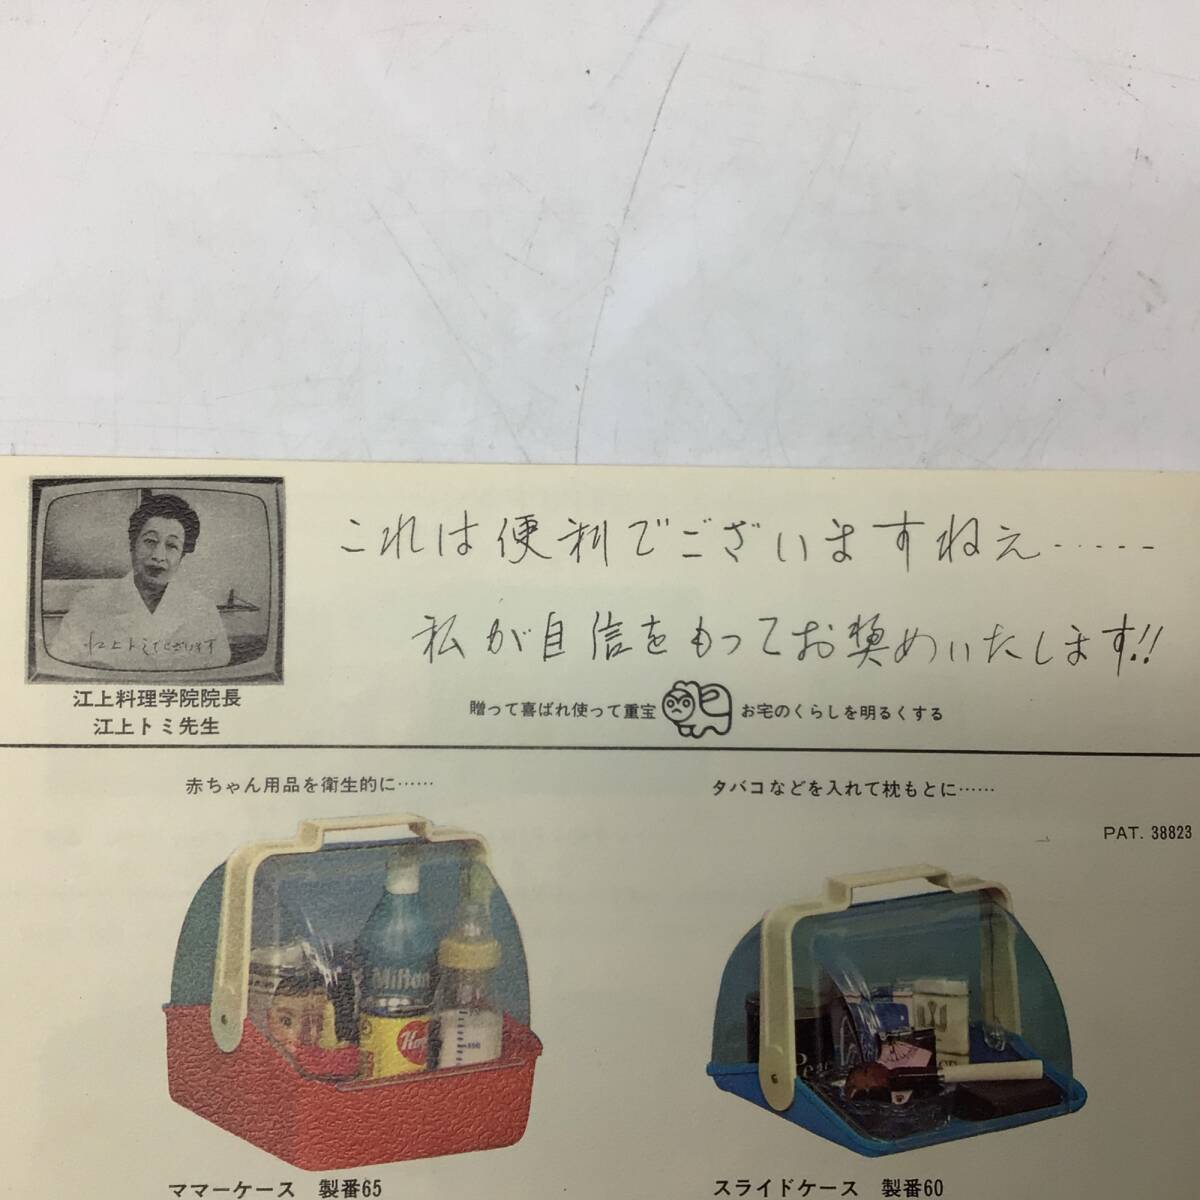 これは便利でございますねえ……
私が自信をもってお奨めいたします!!
江上トミでございます
江上料理学院院長
江上トミ先生
贈って喜ばれ使って重宝
お宅のくらしを明るくする
赤ちゃん用品を衛生的に……
タバコなどを入れて枕もとに……
PAT. 38823
Milton
Peace
ママーケース 製番65
スライドケース 製番60